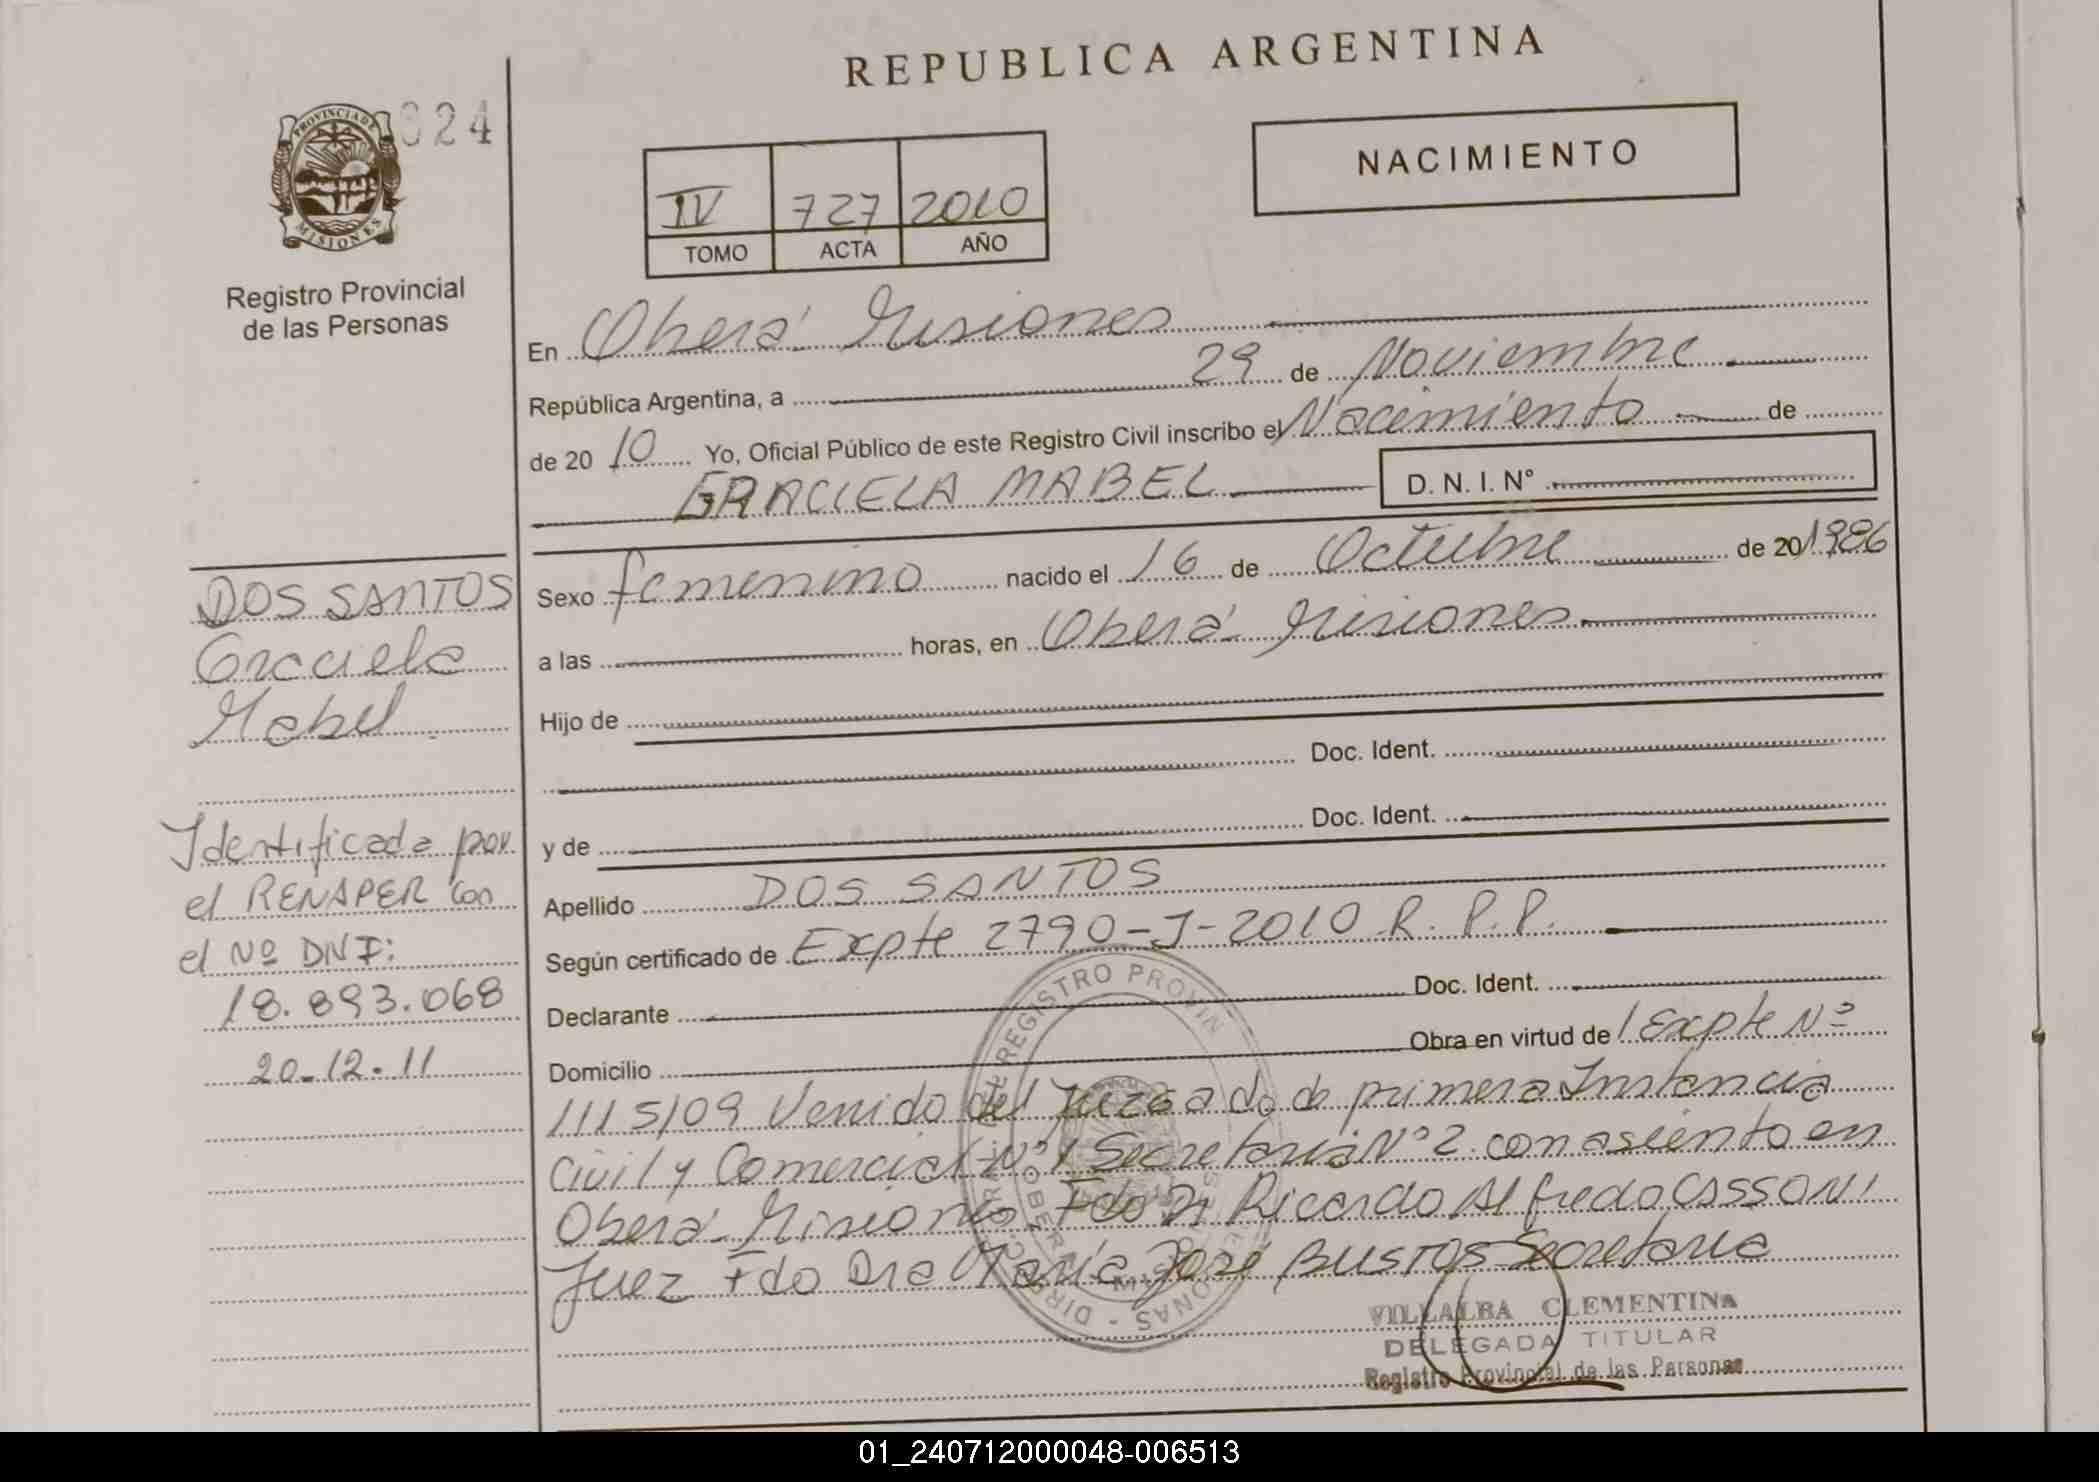 REPUBLICA ARGENTINA
024
PROVINCIA DE MISIONES
Registro Provincial
de las Personas
IV 727 2010
TOMO ACTA AÑO
NACIMIENTO
En Oberá Misiones
República Argentina, a 29 de Noviembre
de 2010 Yo, Oficial Público de este Registro Civil inscribo el Nacimiento de
GRACIELA MABEL D.N.I. Nº
Sexo femenino nacido el 16 de Octubre de 20 1986
a las horas, en Oberá Misiones
Hijo de
Doc. Ident.
y de Doc. Ident.
Apellido DOS SANTOS
Según certificado de Expte 2790-J-2010 R.P.P.
Declarante Doc. Ident.
Domicilio Obra en virtud de / Expte Nº
1115/09 Venido del Juzgado de primera Instancia
Civil y Comercial Nº 1 Secretaria Nº 2 con asiento en
Oberá Misiones, Fdo Dr Ricardo Alfredo CASSONI
Juez Fdo Dra María José BUSTOS Secretaria
VILLALBA CLEMENTINA
DELEGADA TITULAR
Registro Provincial de las Personas
DOS SANTOS
Graciela
Mabel
Identificada por
el RENAPER con
el Nº DNI:
18.893.068
20-12-11
01_240712000048-006513